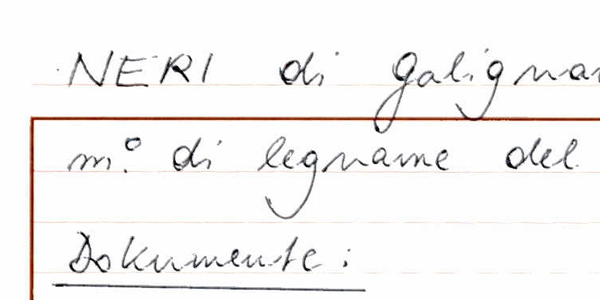 NERI di galigna
m.° di legname del
Dokumente: